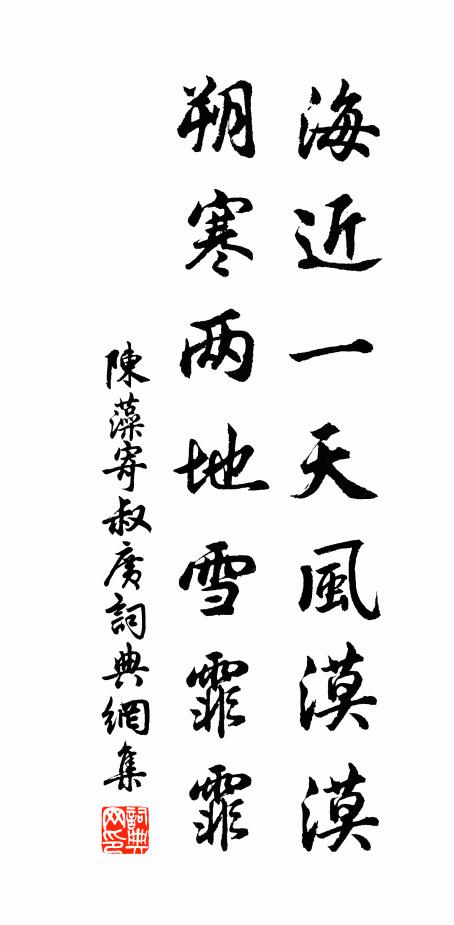 海近一天風漠漠
朔寒两地雪霏霏
陳藻寄叔廣詞典網集
詞典网印